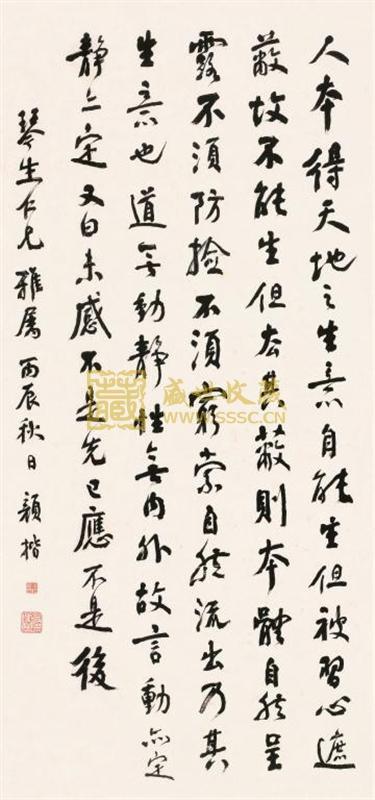 人本得天地之生意自能生但被習心遮
蔽故不能生但去其蔽則本體自然呈
露不須防撿不須窮索自然流出乃其
生意也道無動靜性無內外故言動亦定
靜亦定又曰未感不是先已應不是後
琴生仁兄雅屬 丙辰秋日 顏楷
盛世收藏
WWW.SSSC.CN